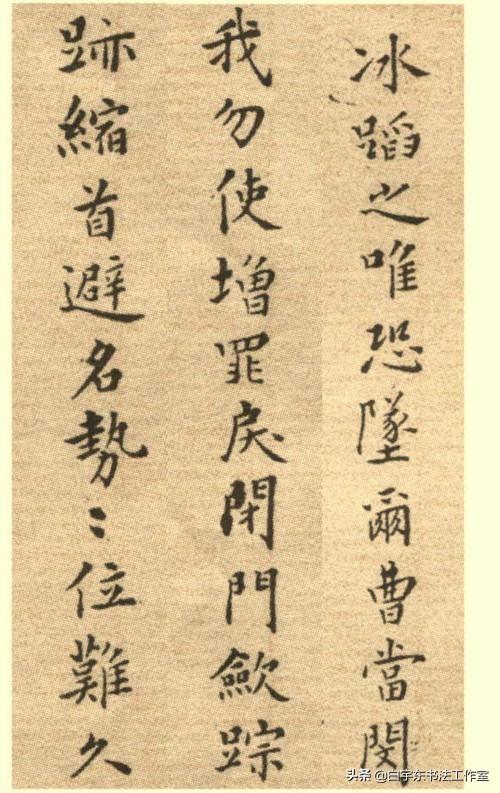 冰蹈之唯恐墜爾曹當閔
我勿使增罪戾閉門歛踪
跡縮首避名勢〻位難久
头条 @白宇东书法工作室